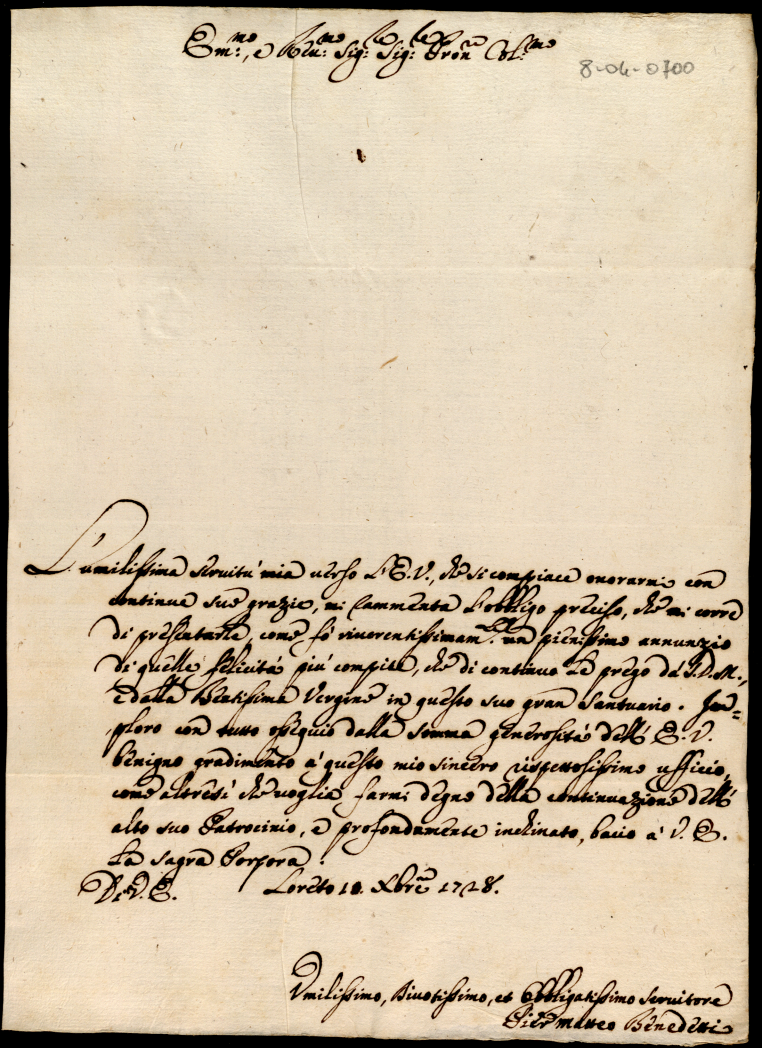 Em:mo, e Reu:mo Sig:re Sig:re Pron:e Col:mo
8-04-0700
L'umilissima seruitù mia uerso L'E.V., che si compiace onorarmi con
continue sue grazie, mi rammenta l'obbligo preciso, che mi corre
di presentarle, come fò riuerentissimam.te un pienissimo annunzio
di quelle felicità più compite, che di continuo Le prego dà S.D.M.,
e dalla Beatissima Vergine in questo suo gran Santuario. Im=
ploro con tutto ossequio dalla somma generosità dell' E.V.
benigno gradimento à questo mio sincero rispettosissimo ufficio,
come altresì che uoglia farmi degno della continuazione dell'
alto suo Patrocinio, e profondamente inchinato, bacio à V.E.
La sagra Porpora.
Di V.E. Loreto 10. Xbre 1728.
Vmilissimo, Diuotissimo, et Obbligatissimo Seruitore
Pier matteo Benedetti